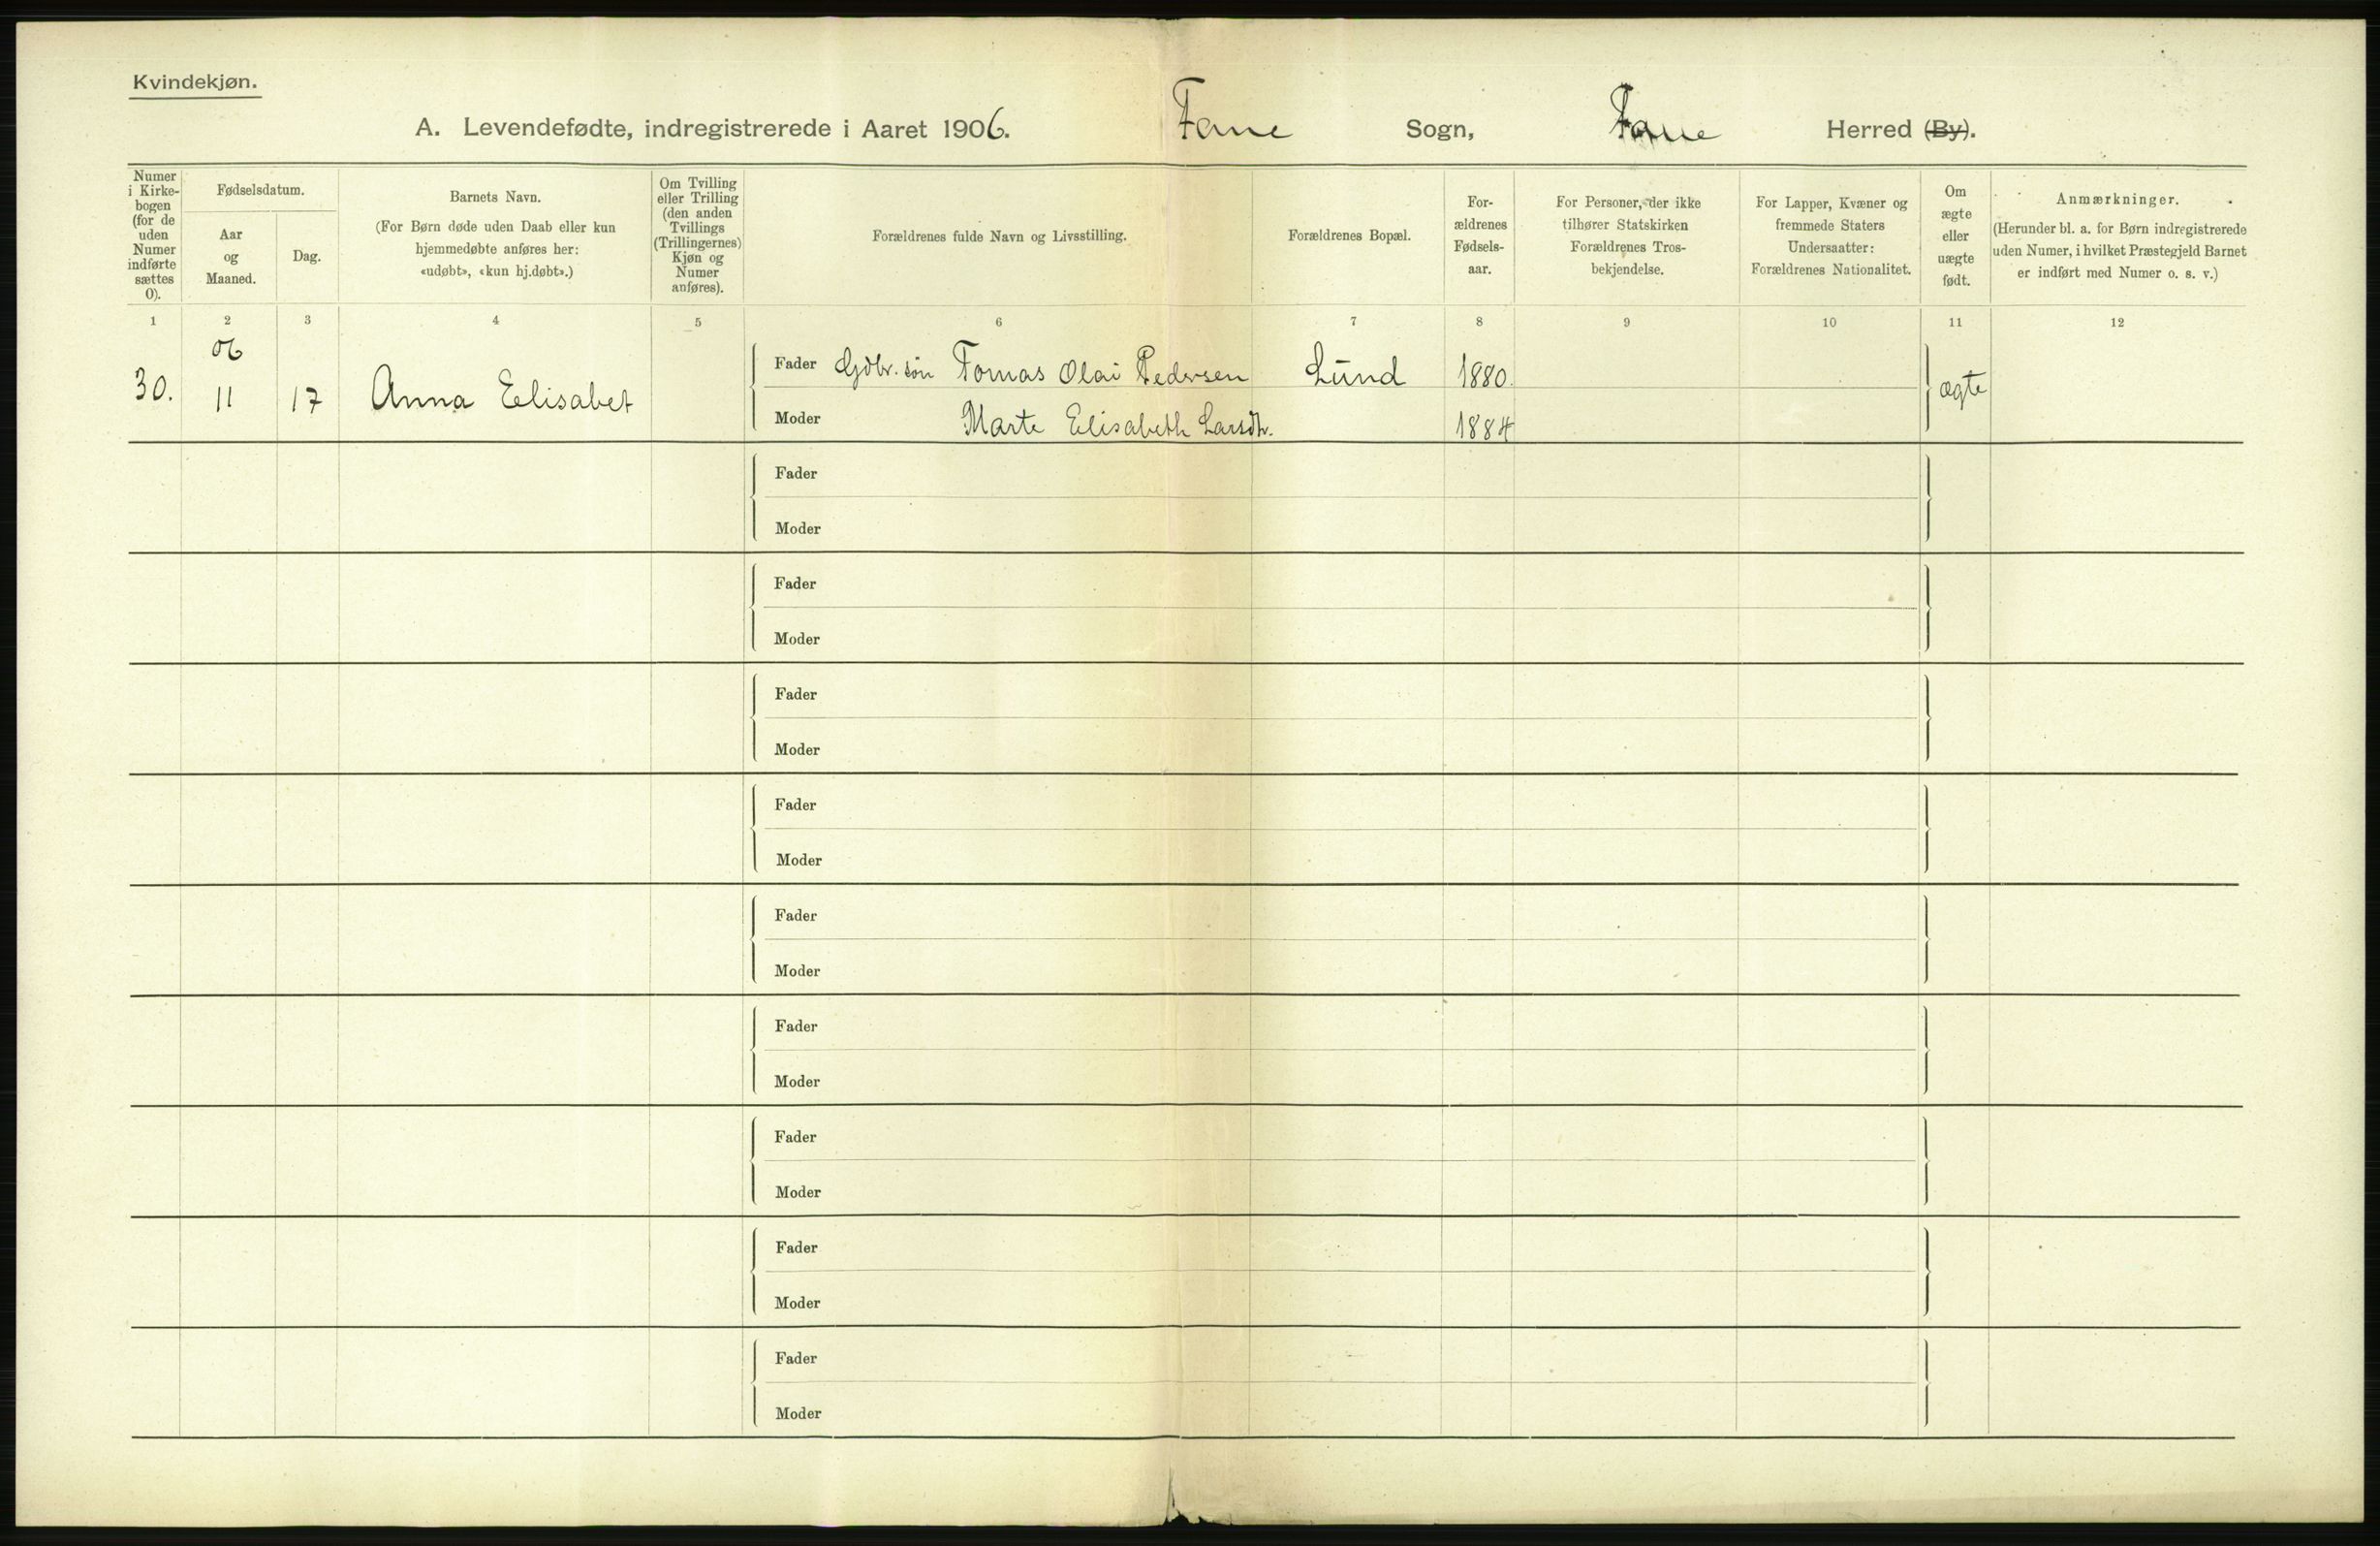 Kvindekjøn.
A. Levendefødte, indregistrerede i Aaret 1906. Fane Sogn, Fane Herred (By).
Numer i Kirkebogen (for de uden Numer indførte sættes 0).
Fødselsdatum.
Aar og Maaned.
Dag.
Barnets Navn.
(For Børn døde uden Daab eller kun
hjemmedøbte anføres her:
«udøbt», «kun hj.døbt».)
Om Tvilling
eller Trilling
(den anden
Tvillings
(Trillingernes)
Kjøn og
Numer
anføres).
Forældrenes fulde Navn og Livsstilling.
Forældrenes Bopæl.
For-
ældrenes
Fødsels-
aar.
For Personer, der ikke
tilhører Statskirken
Forældrenes Tros-
bekjendelse.
For Lapper, Kvæner og
fremmede Staters
Undersaatter:
Forældrenes Nationalitet.
Om
ægte
eller
uægte
født.
Anmærkninger.
(Herunder bl. a. for Børn indregistrerede
uden Numer, i hvilket Præstegjeld Barnet
er indført med Numer o. s. v.)
1 2 3 4 5 6 7 8 9 10 11 12
06
30. 11 17 Anna Elisabet
Fader Gdbr. søn Tomas Olai Pedersen Lund 1880. ægte
Moder Marte Elisabeth Larsdtr. 1884
Fader
Moder
Fader
Moder
Fader
Moder
Fader
Moder
Fader
Moder
Fader
Moder
Fader
Moder
Fader
Moder
Fader
Moder